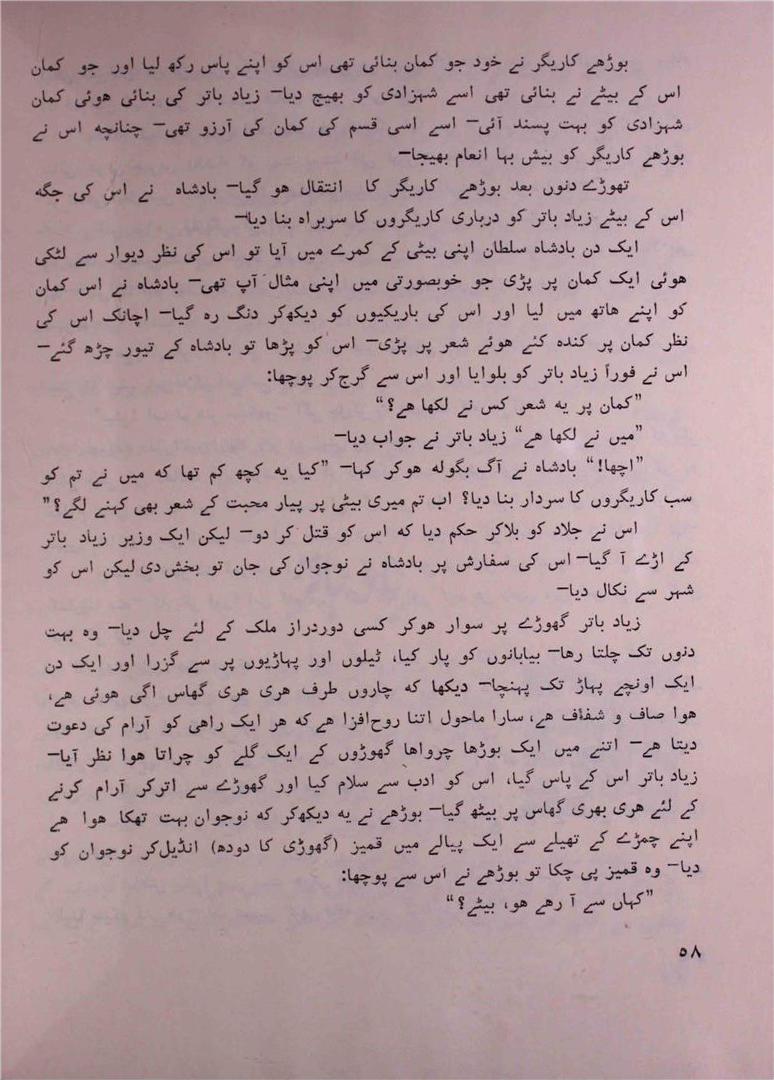 بوڑھے کاریگر نے خود جو کمان بنائی تھی اس کو اپنے پاس رکھ لیا اور جو کمان
اس کے بیٹے نے بنائی تھی اسے شہزادی کو بھیج دیا— زیاد باتر کی بنائی ہوئی کمان
شہزادی کو بہت پسند آئی— اسے اسی قسم کی کمان کی آرزو تھی— چنانچہ اس نے
بوڑھے کاریگر کو بیش بہا انعام بھیجا—
تھوڑے دنوں بعد بوڑھے کاریگر کا انتقال ہو گیا— بادشاہ نے اس کی جگہ
اس کے بیٹے زیاد باتر کو درباری کاریگروں کا سربراہ بنا دیا—
ایک دن بادشاہ سلطان اپنی بیٹی کے کمرے میں آیا تو اس کی نظر دیوار سے لٹکی
ہوئی ایک کمان پر پڑی جو خوبصورتی میں اپنی مثال آپ تھی— بادشاہ نے اس کمان
کو اپنے ہاتھ میں لیا اور اس کی باریکیوں کو دیکھکر دنگ رہ گیا— اچانک اس کی
نظر کمان پر کندہ کئے ہوئے شعر پر پڑی— اس کو پڑھا تو بادشاہ کے تیور چڑھ گئے—
اس نے فوراً زیاد باتر کو بلوایا اور اس سے گرج‌کر پوچھا:
”کمان پر یہ شعر کس نے لکھا ہے؟“
”میں نے لکھا ہے“ زیاد باتر نے جواب دیا—
”اچھا!“ بادشاہ نے آگ بگولہ ہوکر کہا— ”کیا یہ کچھ کم تھا کہ میں نے تم کو
سب کاریگروں کا سردار بنا دیا؟ اب تم میری بیٹی پر پیار محبت کے شعر بھی کہنے لگے؟“
اس نے جلاد کو بلاکر حکم دیا کہ اس کو قتل کر دو— لیکن ایک وزیر زیاد باتر
کے اڑے آ گیا— اس کی سفارش پر بادشاہ نے نوجوان کی جان تو بخش دی لیکن اس کو
شہر سے نکال دیا—
زیاد باتر گھوڑے پر سوار ہوکر کسی دوردراز ملک کے لئے چل دیا— وہ بہت
دنوں تک چلتا رہا— بیابانوں کو پار کیا، ٹیلوں اور پہاڑیوں پر سے گزرا اور ایک دن
ایک اونچے پہاڑ تک پہنچا— دیکھا کہ چاروں طرف ہری ہری گھاس اگی ہوئی ہے،
ہوا صاف و شفاف ہے، سارا ماحول اتنا روح‌افزا ہے کہ ہر ایک راہی کو آرام کی دعوت
دیتا ہے— اتنے میں ایک بوڑھا چرواہا گھوڑوں کے ایک گلے کو چراتا ہوا نظر آیا—
زیاد باتر اس کے پاس گیا، اس کو ادب سے سلام کیا اور گھوڑے سے اترکر آرام کرنے
کے لئے ہری بھری گھاس پر بیٹھ گیا— بوڑھے نے یہ دیکھ‌کر کہ نوجوان بہت تھکا ہوا ہے
اپنے چمڑے کے تھیلے سے ایک پیالے میں قمیز (گھوڑی کا دودھ) انڈیل‌کر نوجوان کو
دیا— وہ قمیز پی چکا تو بوڑھے نے اس سے پوچھا:
”کہاں سے آ رہے ہو، بیٹے؟“
۵۸